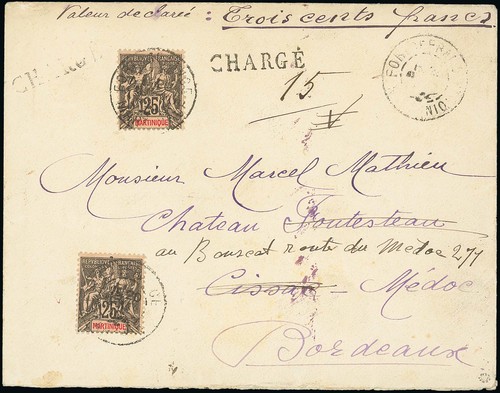 Valeur declarée : Trois cents francs
CHARGÉ
CHARGÉ
15
V
FORT DE FRANCE
REPUBLIQUE FRANCAISE
25
MARTINIQUE
Monsieur Marcel Mathieu
Chateau Fontesteau
au Bouscat route du Medoc 277
Cissac - Médoc
Bordeaux
REPUBLIQUE FRANCAISE
25
MARTINIQUE